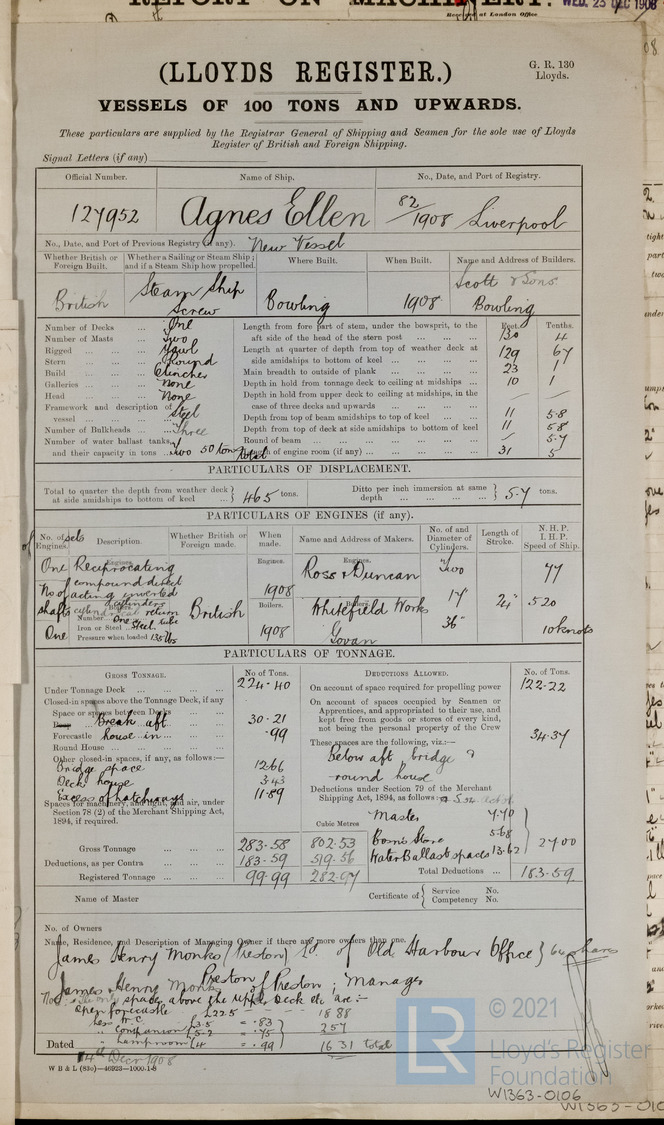 REPORT ON MACHINERY.
WED. 23 DEC 1908
Received at London Office
(LLOYDS REGISTER.)
G. R. 130
Lloyds.
VESSELS OF 100 TONS AND UPWARDS.
These particulars are supplied by the Registrar General of Shipping and Seamen for the sole use of Lloyds
Register of British and Foreign Shipping.
Signal Letters (if any)
Official Number. Name of Ship. No., Date, and Port of Registry.
127952 Agnes Ellen 82/1908 Liverpool
No., Date, and Port of Previous Registry (if any). New Vessel
Whether British or Foreign Built. Whether a Sailing or Steam Ship; and if a Steam Ship how propelled. Where Built. When Built. Name and Address of Builders.
British Steam Ship Screw Bowling 1908 Scott & Sons Bowling
Number of Decks ... One
Number of Masts ... Two
Rigged ... Yawl
Stern ... Round
Build ... Clincher
Galleries ... None
Head ... None
Framework and description of vessel ... Steel
Number of Bulkheads ... Three
Number of water ballast tanks, and their capacity in tons ... Two 50 tons total
Feet. Tenths.
Length from fore part of stem, under the bowsprit, to the aft side of the head of the stern post ... 130 4
Length at quarter of depth from top of weather deck at side amidships to bottom of keel ... 129 67
Main breadth to outside of plank ... 23 1
Depth in hold from tonnage deck to ceiling at midships ... 10 1
Depth in hold from upper deck to ceiling at midships, in the case of three decks and upwards ... — —
Depth from top of beam amidships to top of keel ... 11 5.8
Depth from top of deck at side amidships to bottom of keel 11 5.8
Round of beam ... — 5.7
Length of engine room (if any) ... 31 5
PARTICULARS OF DISPLACEMENT.
Total to quarter the depth from weather deck at side amidships to bottom of keel ... 465 tons. Ditto per inch immersion at same depth ... 5.7 tons.
PARTICULARS OF ENGINES (if any).
No. of sets of Engines. Description. Whether British or Foreign made. When made. Name and Address of Makers. No. of and Diameter of Cylinders. Length of Stroke. N. H. P. I. H. P. Speed of Ship.
One Engines. Reciprocating Engines. Engines. Two 77
No of compound direct 1908 Ross & Duncan
acting inverted cylinders 17 24" 520
shafts Boilers. cylindrical return British Boilers. Whitefield Works
Number One
Iron or Steel Steel tube 36"
One Pressure when loaded 135 lbs 1908 Govan 10 knots
PARTICULARS OF TONNAGE.
GROSS TONNAGE. No of Tons. DEDUCTIONS ALLOWED. No. of Tons.
Under Tonnage Deck ... 224.40
On account of space required for propelling power 122.22
Closed-in spaces above the Tonnage Deck, if any
Space or spaces between Decks
Poop Break aft 30.21
Forecastle house in .99
Round House
Other closed-in spaces, if any, as follows:—
Bridge space 12.66
Deck house 3.43
Excess of hatchways 11.89
Spaces for machinery, and light, and air, under Section 78 (2) of the Merchant Shipping Act, 1894, if required.
On account of spaces occupied by Seamen or Apprentices, and appropriated to their use, and kept free from goods or stores of every kind, not being the personal property of the Crew 34.37
These spaces are the following, viz.:—
Below aft bridge &
round house
Deductions under Section 79 of the Merchant Shipping Act, 1894, as follows:
Cubic Metres
Master 7.70
Boatns Store 5.68
Water Ballast spaces 13.62 27.00
Gross Tonnage ... 283.58 802.53
Deductions, as per Contra ... 183.59 519.56
Registered Tonnage ... 99.99 282.97
Total Deductions ... 183.59
Name of Master Certificate of Service No. Competency No.
No. of Owners
Name, Residence, and Description of Managing Owner if there are more owners than one.
James Henry Monks (Preston) Ld. of Old Harbour Office } 64 shares
Preston
James Henry Monks of Preston; Manager
Note: The only spaces above the upper deck etc are:—
Open forecastle L22.5 — 18.88
Less W.C. L3.5 = .83
" Companion L5.2 = .75 2.57
" Lamproom L4 = .99
16.31 total
Dated 14th Decr 1908
W B & L (83c)—46923—1000-1-8
© 2021
LR
Lloyd's Register
Foundation
W1363-0106